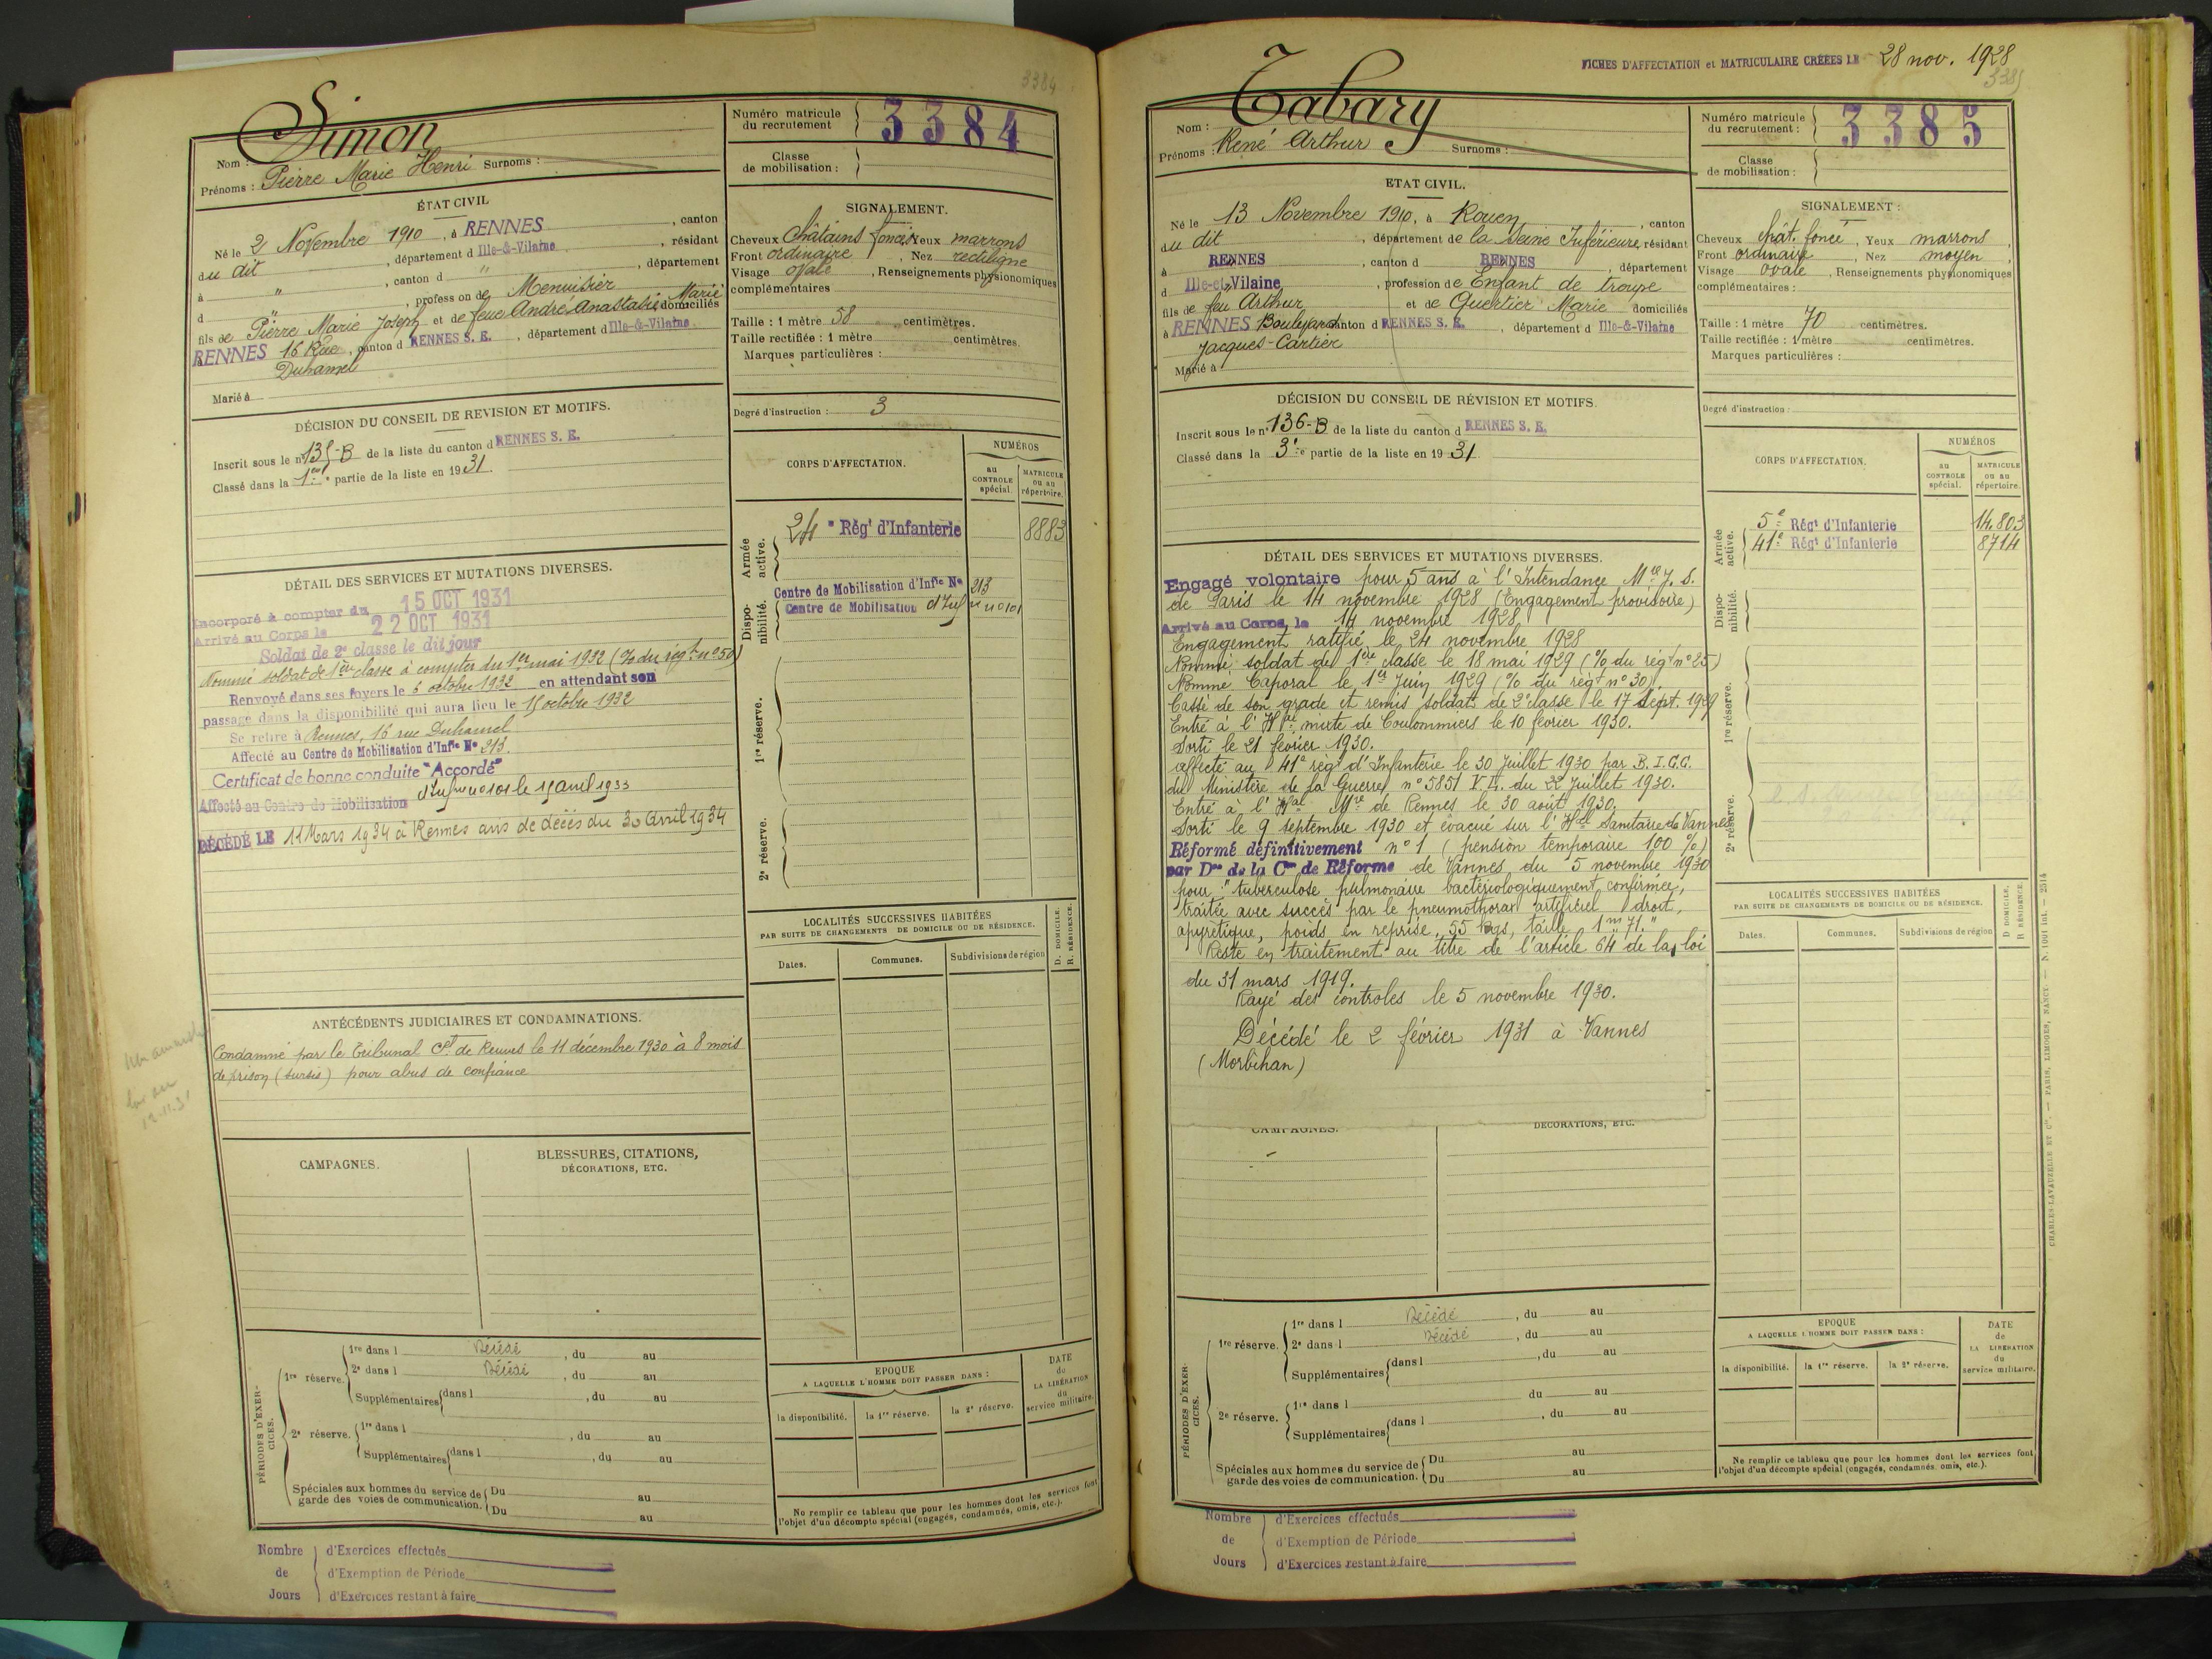 3384
Simon
Nom :
Prénoms : Pierre Marie Henri Surnoms :
Numéro matricule du recrutement 3384
Classe de mobilisation :
ÉTAT CIVIL
Né le 2 Novembre 1910, à RENNES, canton
du dit, département d Ille-&-Vilaine, résidant
à ", canton d ", département
d ", profession de Menuisier
fils de Pierre Marie Joseph et de feue André Anastasie Marie domiciliés
RENNES 16 Rue, canton d RENNES S. E., département d Ille-&-Vilaine
Duhamel
Marié à
SIGNALEMENT.
Cheveux Châtains foncés Yeux marrons
Front ordinaire, Nez rectiligne
Visage ovale, Renseignements physionomiques
complémentaires
Taille : 1 mètre 58 centimètres.
Taille rectifiée : 1 mètre centimètres.
Marques particulières :
Degré d'instruction : 3
DÉCISION DU CONSEIL DE REVISION ET MOTIFS.
Inscrit sous le n° 135-B de la liste du canton d RENNES S. E.
Classé dans la 1ère partie de la liste en 1931.
CORPS D'AFFECTATION.
NUMÉROS
au CONTROLE spécial.
MATRICULE ou au répertoire.
Armée active.
24e Rég' d'Infanterie 8883
Disponibilité.
Centre de Mobilisation d'Infie N° 213
Centre de Mobilisation d'Inf n° 101
1re réserve.
2e réserve.
DÉTAIL DES SERVICES ET MUTATIONS DIVERSES.
Incorporé à compter du 15 OCT 1931
Arrivé au Corps le 22 OCT 1931
Soldat de 2e classe le dit jour
Nommé soldat de 1ère classe à compter du 1er mai 1932 (% du régt n° 50)
Renvoyé dans ses foyers le 6 octobre 1932 en attendant son
passage dans la disponibilité qui aura lieu le 15 octobre 1932
Se retire à Rennes, 16 rue Duhamel
Affecté au Centre de Mobilisation d'Infie N° 213.
Certificat de bonne conduite "Accordé"
Affecté au Centre de Mobilisation d'Infie n° 101 le 15 avril 1933
DÉCÉDÉ LE 11 Mars 1934 à Rennes avis de décès du 30 Avril 1934
LOCALITÉS SUCCESSIVES HABITÉES
PAR SUITE DE CHANGEMENTS DE DOMICILE OU DE RÉSIDENCE.
Dates. Communes. Subdivisions de région
D. DOMICILE. R. RÉSIDENCE.
ANTÉCÉDENTS JUDICIAIRES ET CONDAMNATIONS.
Condamné par le Tribunal Cel de Rennes le 11 décembre 1930 à 8 mois
de prison (sursis) pour abus de confiance
12.11.31
CAMPAGNES.
BLESSURES, CITATIONS,
DÉCORATIONS, ETC.
PÉRIODES D'EXERCICES.
1re réserve. 1re dans l Décédé, du au
2e dans l Décédé, du au
Supplémentaires dans l, du au
2e réserve. 1re dans l, du au
Supplémentaires dans l, du au
Spéciales aux hommes du service de garde des voies de communication. Du au
Du au
EPOQUE
A LAQUELLE L'HOMME DOIT PASSER DANS :
la disponibilité. la 1re réserve. la 2e réserve.
DATE de LA LIBÉRATION du service militaire.
Ne remplir ce tableau que pour les hommes dont les services font
l'objet d'un décompte spécial (engagés, condamnés, omis, etc.).
Nombre de Jours
d'Exercices effectués
d'Exemption de Période
d'Exercices restant à faire
FICHES D'AFFECTATION et MATRICULAIRE CRÉÉES LE 28 nov. 1928
3385
Tabary
Nom :
Prénoms : René Arthur Surnoms :
Numéro matricule du recrutement : 3385
Classe de mobilisation :
ETAT CIVIL.
Né le 13 Novembre 1910, à Rouen, canton
du dit, département de la Seine Inférieure, résidant
à RENNES, canton d RENNES, département
d Ille-et-Vilaine, profession de Enfant de troupe
fils de feu Arthur et de Quertier Marie domiciliés
à RENNES Boulevard canton d RENNES S. E., département d Ille-&-Vilaine
Jacques-Cartier
Marié à
SIGNALEMENT :
Cheveux chât. foncé, Yeux marrons,
Front ordinaire, Nez moyen,
Visage ovale, Renseignements physionomiques
complémentaires :
Taille : 1 mètre 70 centimètres.
Taille rectifiée : 1 mètre centimètres.
Marques particulières :
Degré d'instruction :
DÉCISION DU CONSEIL DE RÉVISION ET MOTIFS.
Inscrit sous le n° 136-B de la liste du canton d RENNES S. E.
Classé dans la 3e partie de la liste en 1931
CORPS D'AFFECTATION.
NUMÉROS
au CONTROLE spécial.
MATRICULE ou au répertoire.
Armée active.
5e Régt d'Infanterie 14.803
41e Régt d'Infanterie 8714
Disponibilité.
1re réserve.
2e réserve.
DÉTAIL DES SERVICES ET MUTATIONS DIVERSES.
Engagé volontaire pour 5 ans à l'Intendance Mre J. S.
de Paris le 14 novembre 1928 (Engagement provisoire)
Arrivé au Corps le 14 novembre 1928
Engagement ratifié le 24 novembre 1928
Nommé soldat de 1ère classe le 18 mai 1929 (% du régt n° 25)
Nommé Caporal le 1er Juin 1929 (% du régt n° 30)
Cassé de son grade et remis soldat de 2e classe le 17 Sept. 1929
Entré à l'Hal mixte de Coulommiers le 10 février 1930.
Sorti le 21 février 1930.
affecté au 41e régt d'Infanterie le 30 Juillet 1930 par B.I.G.G.
du Ministère de la Guerre n° 5851 V.L. du 22 Juillet 1930.
Entré à l'Hal Mre de Rennes le 30 août 1930.
Sorti le 9 septembre 1930 et évacué sur l'Hal Sanitaire de Vannes
Réformé définitivement n° 1 (pension temporaire 100 %)
par Don de la Con de Réforme de Vannes du 5 novembre 1930
pour : "tuberculose pulmonaire bactériologiquement confirmée,
traitée avec succès par le pneumothorax artificiel droit,
apyrétique, poids en reprise, 55 kgs, taille 1m 71."
Reste en traitement au titre de l'article 64 de la loi
du 31 mars 1919.
Rayé des contrôles le 5 novembre 1930.
Décédé le 2 février 1931 à Vannes
(Morbihan)
LOCALITÉS SUCCESSIVES HABITÉES
PAR SUITE DE CHANGEMENTS DE DOMICILE OU DE RÉSIDENCE.
Dates. Communes. Subdivisions de région
D DOMICILE. R RÉSIDENCE.
CAMPAGNES.
DÉCORATIONS, ETC.
PÉRIODES D'EXERCICES.
1re réserve. 1re dans l Décédé, du au
2e dans l Décédé, du au
Supplémentaires dans l, du au
du au
2e réserve. 1re dans l, du au
Supplémentaires dans l
Spéciales aux hommes du service de garde des voies de communication. Du au
Du au
EPOQUE
A LAQUELLE L'HOMME DOIT PASSER DANS :
la disponibilité. la 1re réserve. la 2e réserve.
DATE de LA LIBÉRATION du service militaire.
Ne remplir ce tableau que pour les hommes dont les services font
l'objet d'un décompte spécial (engagés, condamnés, omis, etc.).
Nombre de Jours
d'Exercices effectués
d'Exemption de Période
d'Exercices restant à faire
CHARLES-LAVAUZELLE ET Cie. — PARIS, LIMOGES, NANCY — N. 1001 int. — 2514